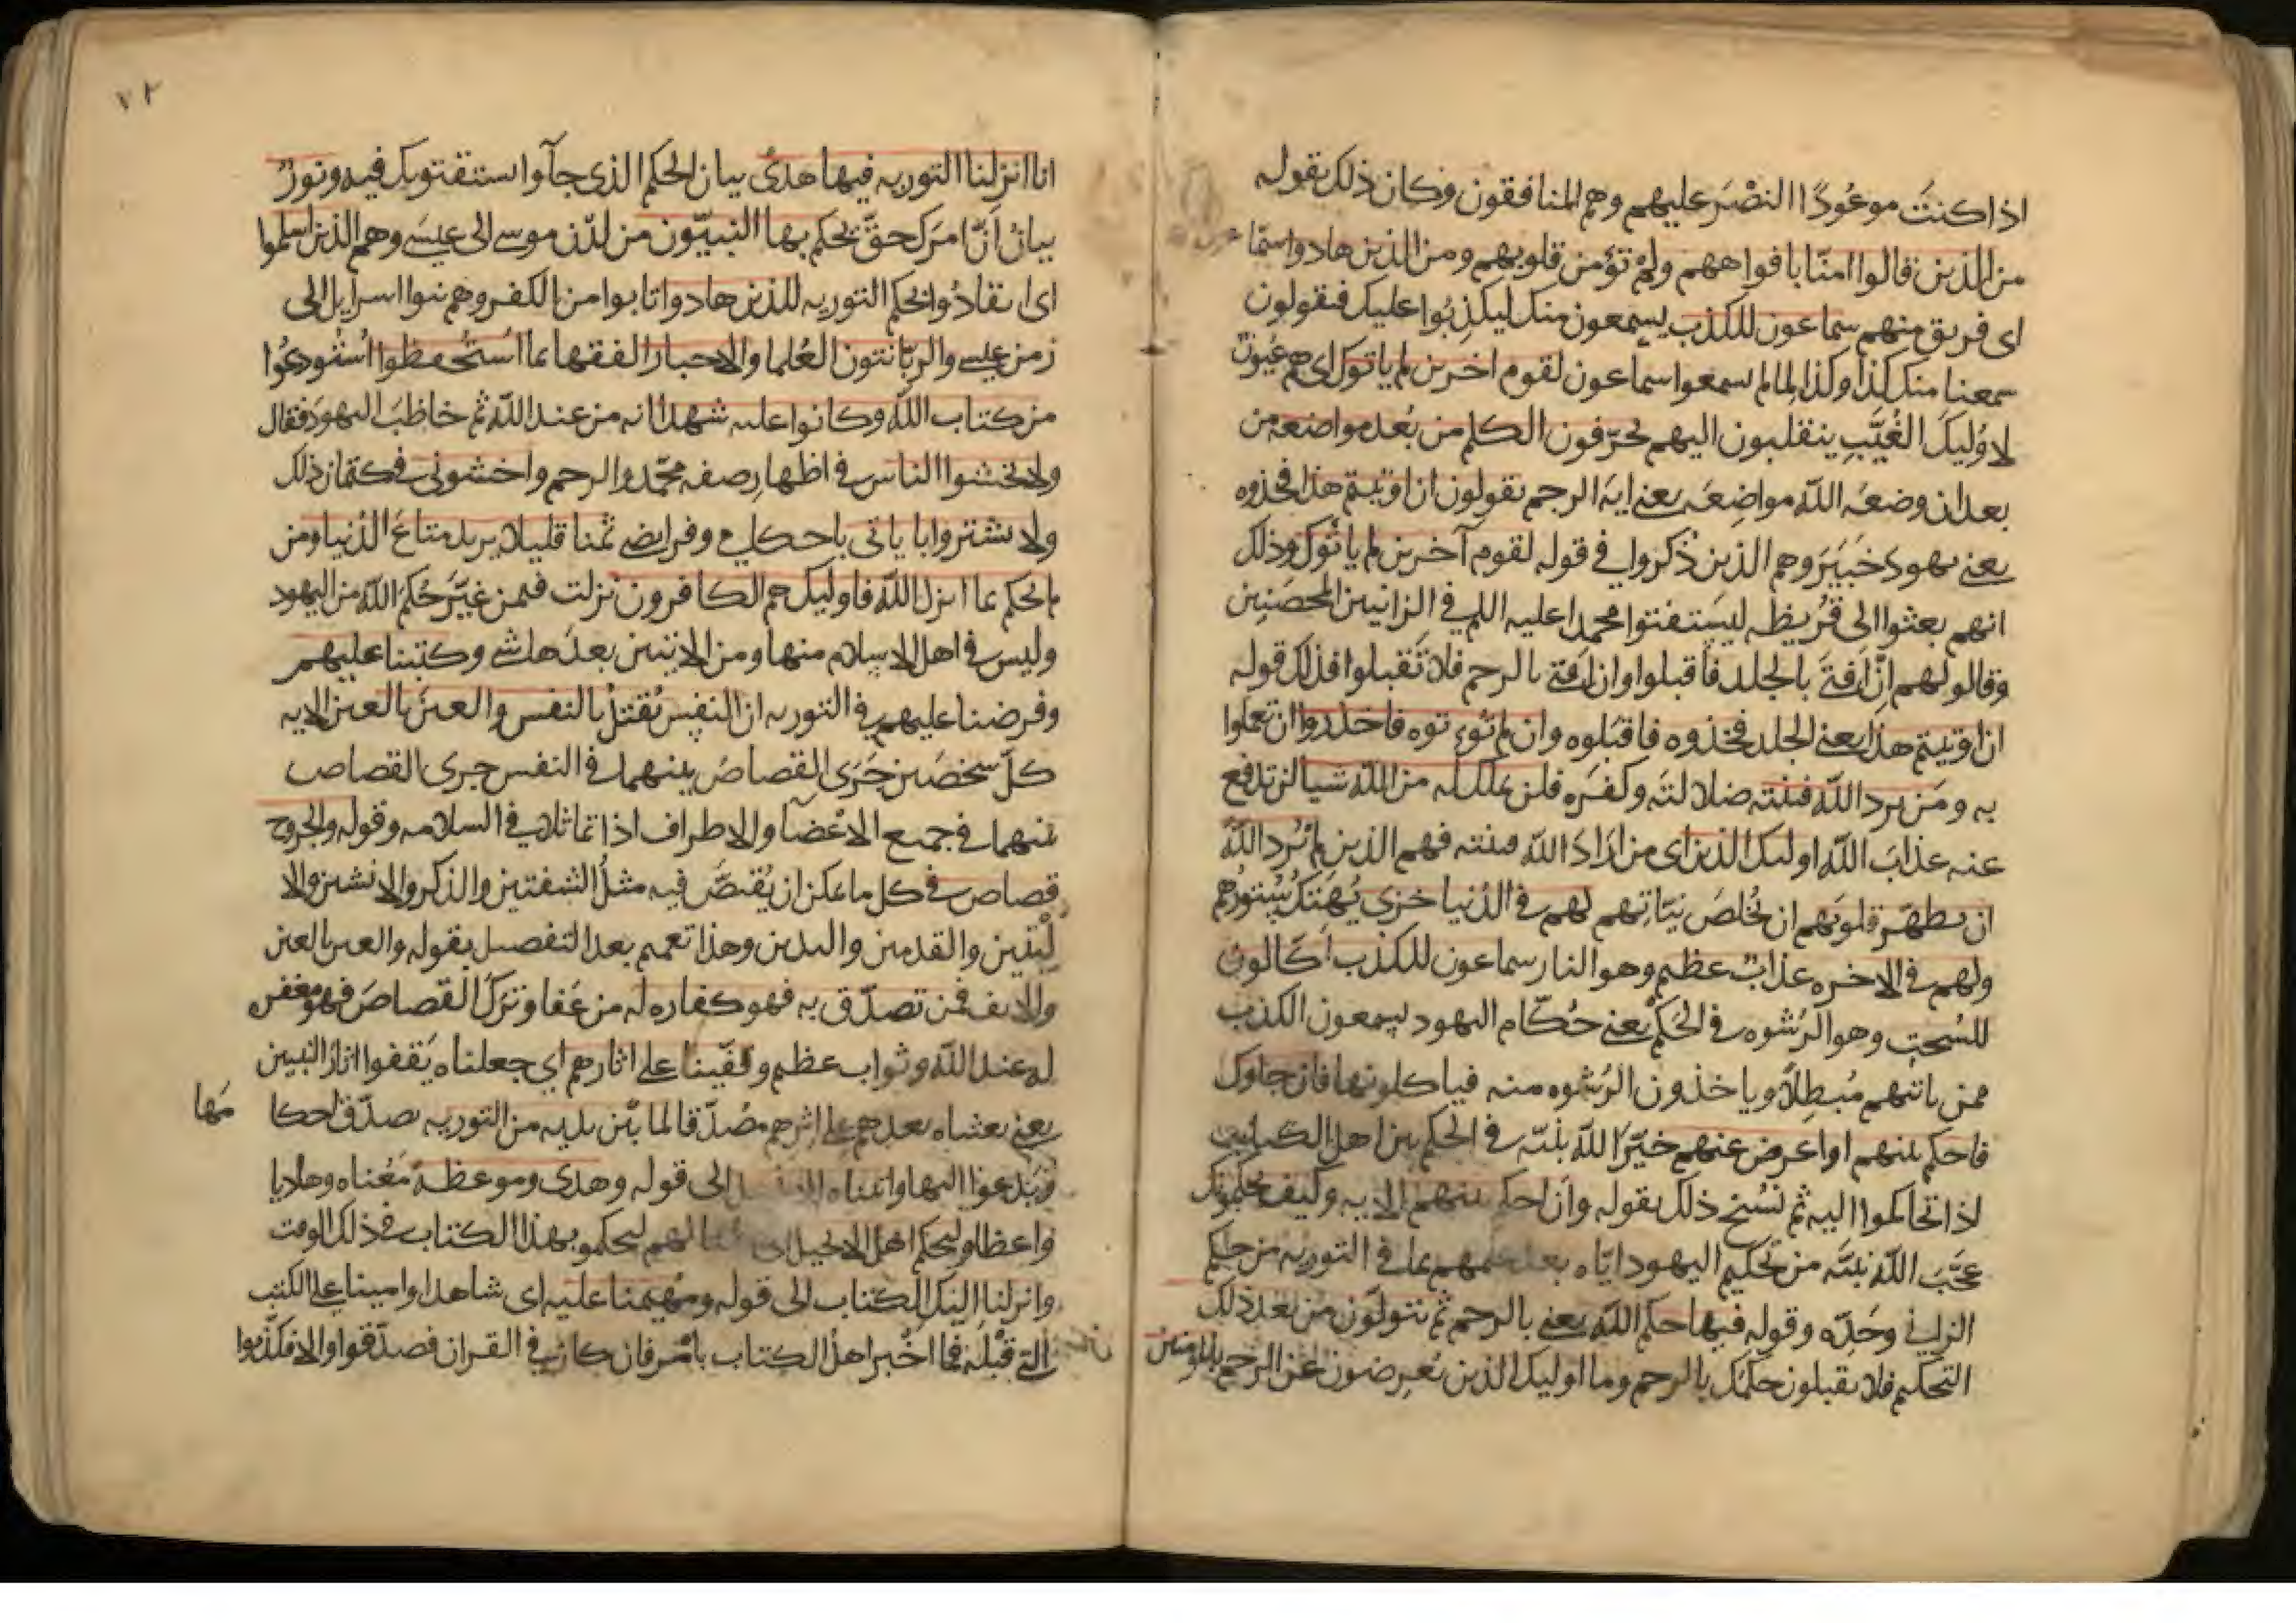 اذا كنتَ موعُودًا النصْرَ عليهم وهم المنافقون وكان ذلك بقوله
من الذين قالوا امنّا بافواههم ولم تؤمن قلوبهم ومن الذين هادوا سمّا
اى فريق منهم سماعون للكذب يسمعون منك ليكذِبُوا عليك فيقولون
سمعنا منك كذا وكذا لما لم يسمعوا سماعون لقوم اخرين لم ياتوك اى هم عُيونٌ
لاوليكَ الغُيَّبِ ينقلبون اليهم يحرّفون الكلم من بُعد مواضعه من
بعد ان وضعَه الله مواضِعَه يعنى ايه الرجم يقولون ان اوتيتم هذا فخذوه
يعنى يهودَ خَيْبَرَ وهم الذين ذُكروا فى قوله لقوم آخرين لم ياتُوك وذلك
انهم بعثوا الى قُريظه ليستفتوا محمدا عليه اللم فى الزانيين المحصَنين
وقالو لهم اِنْ اَفتَى بالجلد فاقبلوا وان افتى بالرجم فلا تَقبلوا فذلك قوله
ان اوتيتم هذا يعنى الجلد فخذوه فاقبَلوه وان لم تُوء توه فاحذروا ان تعملوا
به ومَن يرد الله فتنته ضلالتَه وكفرَه فلن تملك له من الله شيا لن تدفع
عنه عذابَ الله اوليك الذين اى من ارَادَ الله فتنته فهم الذين لم يُرد اللهُ
ان يطهّر قلوبَهم ان يُخلصَ نيّاتِهم لهم فى الدُنيا خزى يُهتَكُ سُتورُهم
ولهم فى الاخره عذابٌ عظيم وهو النار سماعون للكذب اَكّالون
للسُحتِ وهو الرُشوه فى الحُكم يعنى حُكّام اليهود يسمعون الكذب
ممن ياتيهم مُبطِلاً وياخذون الرُشوه منه فياكلونها فان جاوك
فاحكم بينهم او اعرض عنهم خيّرَ الله نبيّه فى الحكم بين اهل الكتابين
اذا تحاكموا اليه ثم نُسِخ ذلك بقوله وان احكم بينهم الايه وكيف يُحكّمونك
عَجّبَ الله نبيَّه من تحكيم اليهود ايّاه بعد علمهم بما فى التوريه من حكم
الزانى وحَدِّه وقوله فيها حكم الله يعنى بالرجم ثم يتولّون من بعد ذلك
التحكيم فلا يقبلون حكمك بالرجم وما اوليك الذين يُعرضون عن الرجم بالمؤمنين
٧٢
انا انزلنا التوريه فيها هدًى بيان الحكم الذى جآوا يستفتونك فيه ونورٌ
بيانُ اَنّ امرَك حقّ يحكم بها النبيّون من لدن موسى الى عيسَى وهم الذين اسلموا
اى انقادُوا لحكم التوريه للذين هادوا تابوا من الكفر وهم بنوا اسرايل الى
زمن عيسى والربّانيون العُلما والاحبار الفقها بما اسْتُحفظوا استُودِعُوا
من كتاب الله وكانوا عليه شهدا انه من عند الله ثم خاطَبَ اليهودَ فقال
ولا تخشوا الناس فى اظهار صفه محمّد والرجم واخشونى فى كتمان ذلك
ولا تشتروا باياتى باحكامى وفرايضى ثمنا قليلا يريد متاعَ الدُنيا ومن
لم يحكم بما انزل الله فاوليك هم الكافرون نزلت فيمن غيّرَ حُكمَ الله من اليهود
وليس فى اهل الاسلام منها ومن الايتين بعدَها شى وكتبنا عليهم
وفرضنا عليهم فى التوريه ان النفس تُقتلُ بالنفس والعينَ بالعين الايه
كلّ شخصَين جَرَى القصاصُ بينهما فى النفس جرى القصاص
بينهما فى جميع الاعْضآ والاطراف اذا تماثلا فى السلامه وقوله والجروح
قصاص فى كل ما يمكن ان يُقتصَّ فيه مثلُ الشفتين والذكر والانثيين والا
ليَتين والقدمين واليدين وهذا تعميم بعد التفصيل بقوله والعين بالعين
والانف فمن تصدّق به فهو كفاره له من عَفا وتركَ القصاصَ فهو مغفره
له عند الله وثواب عظيم وقفّينا على اثارهم اى جعلناه يَقفوا اثارَ النبيين
يعنى بعثناه بعدهم على اثرهم مصُدّقا لما بَيْن يديه من التوريه يصدّق احكا
مَها
ويَدعوا اليها واتيناه الى قوله وهدى وموعظة مَعْناه وهاديا
واعظا وليحكم اهل الانجيل لهم ليحكمو بهذا الكتاب فى ذلك الوقت
وانزلنا اليك الكتاب الى قوله ومُهيمنا عليه اى شاهدا وامينا على الكتب
التى قبْله فما اخْبر اهلُ الكتاب بامْر فان كان فى القران فصدّقوا والا فكذّبوا